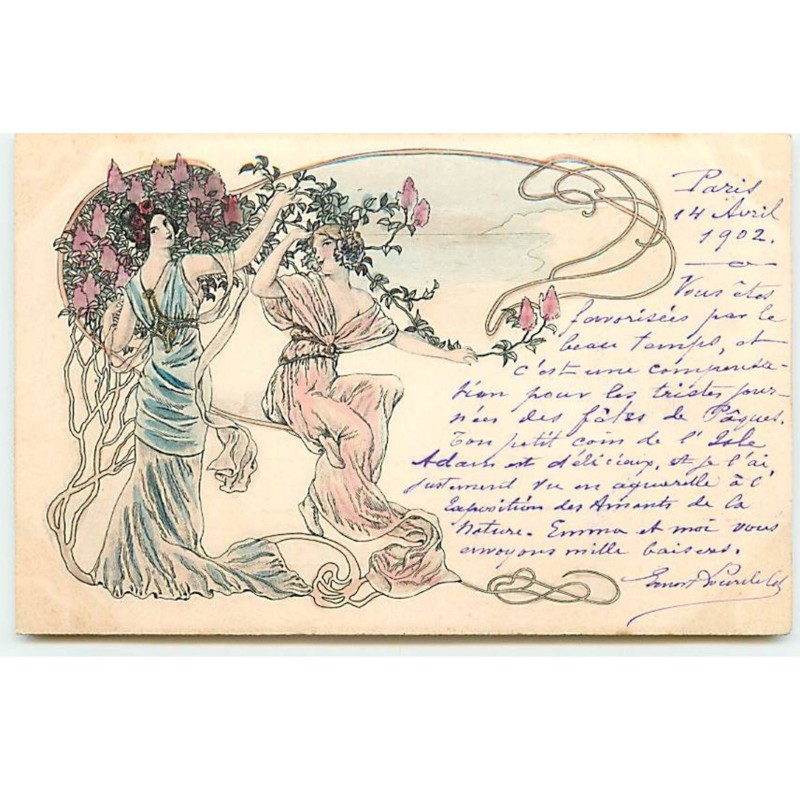 Paris
14 Avril
1902.
Vous êtes
favorisées par le
beau temps, et
c'est une compensa-
tion pour les tristes jour-
nées des fêtes de Pâques.
Ton petit coin de l'Isle
Adam est délicieux, et je l'ai
justement vu en aquarelle à l'
Exposition des Amants de la
Nature. Emma et moi vous
envoyons mille baisers.
Ernest